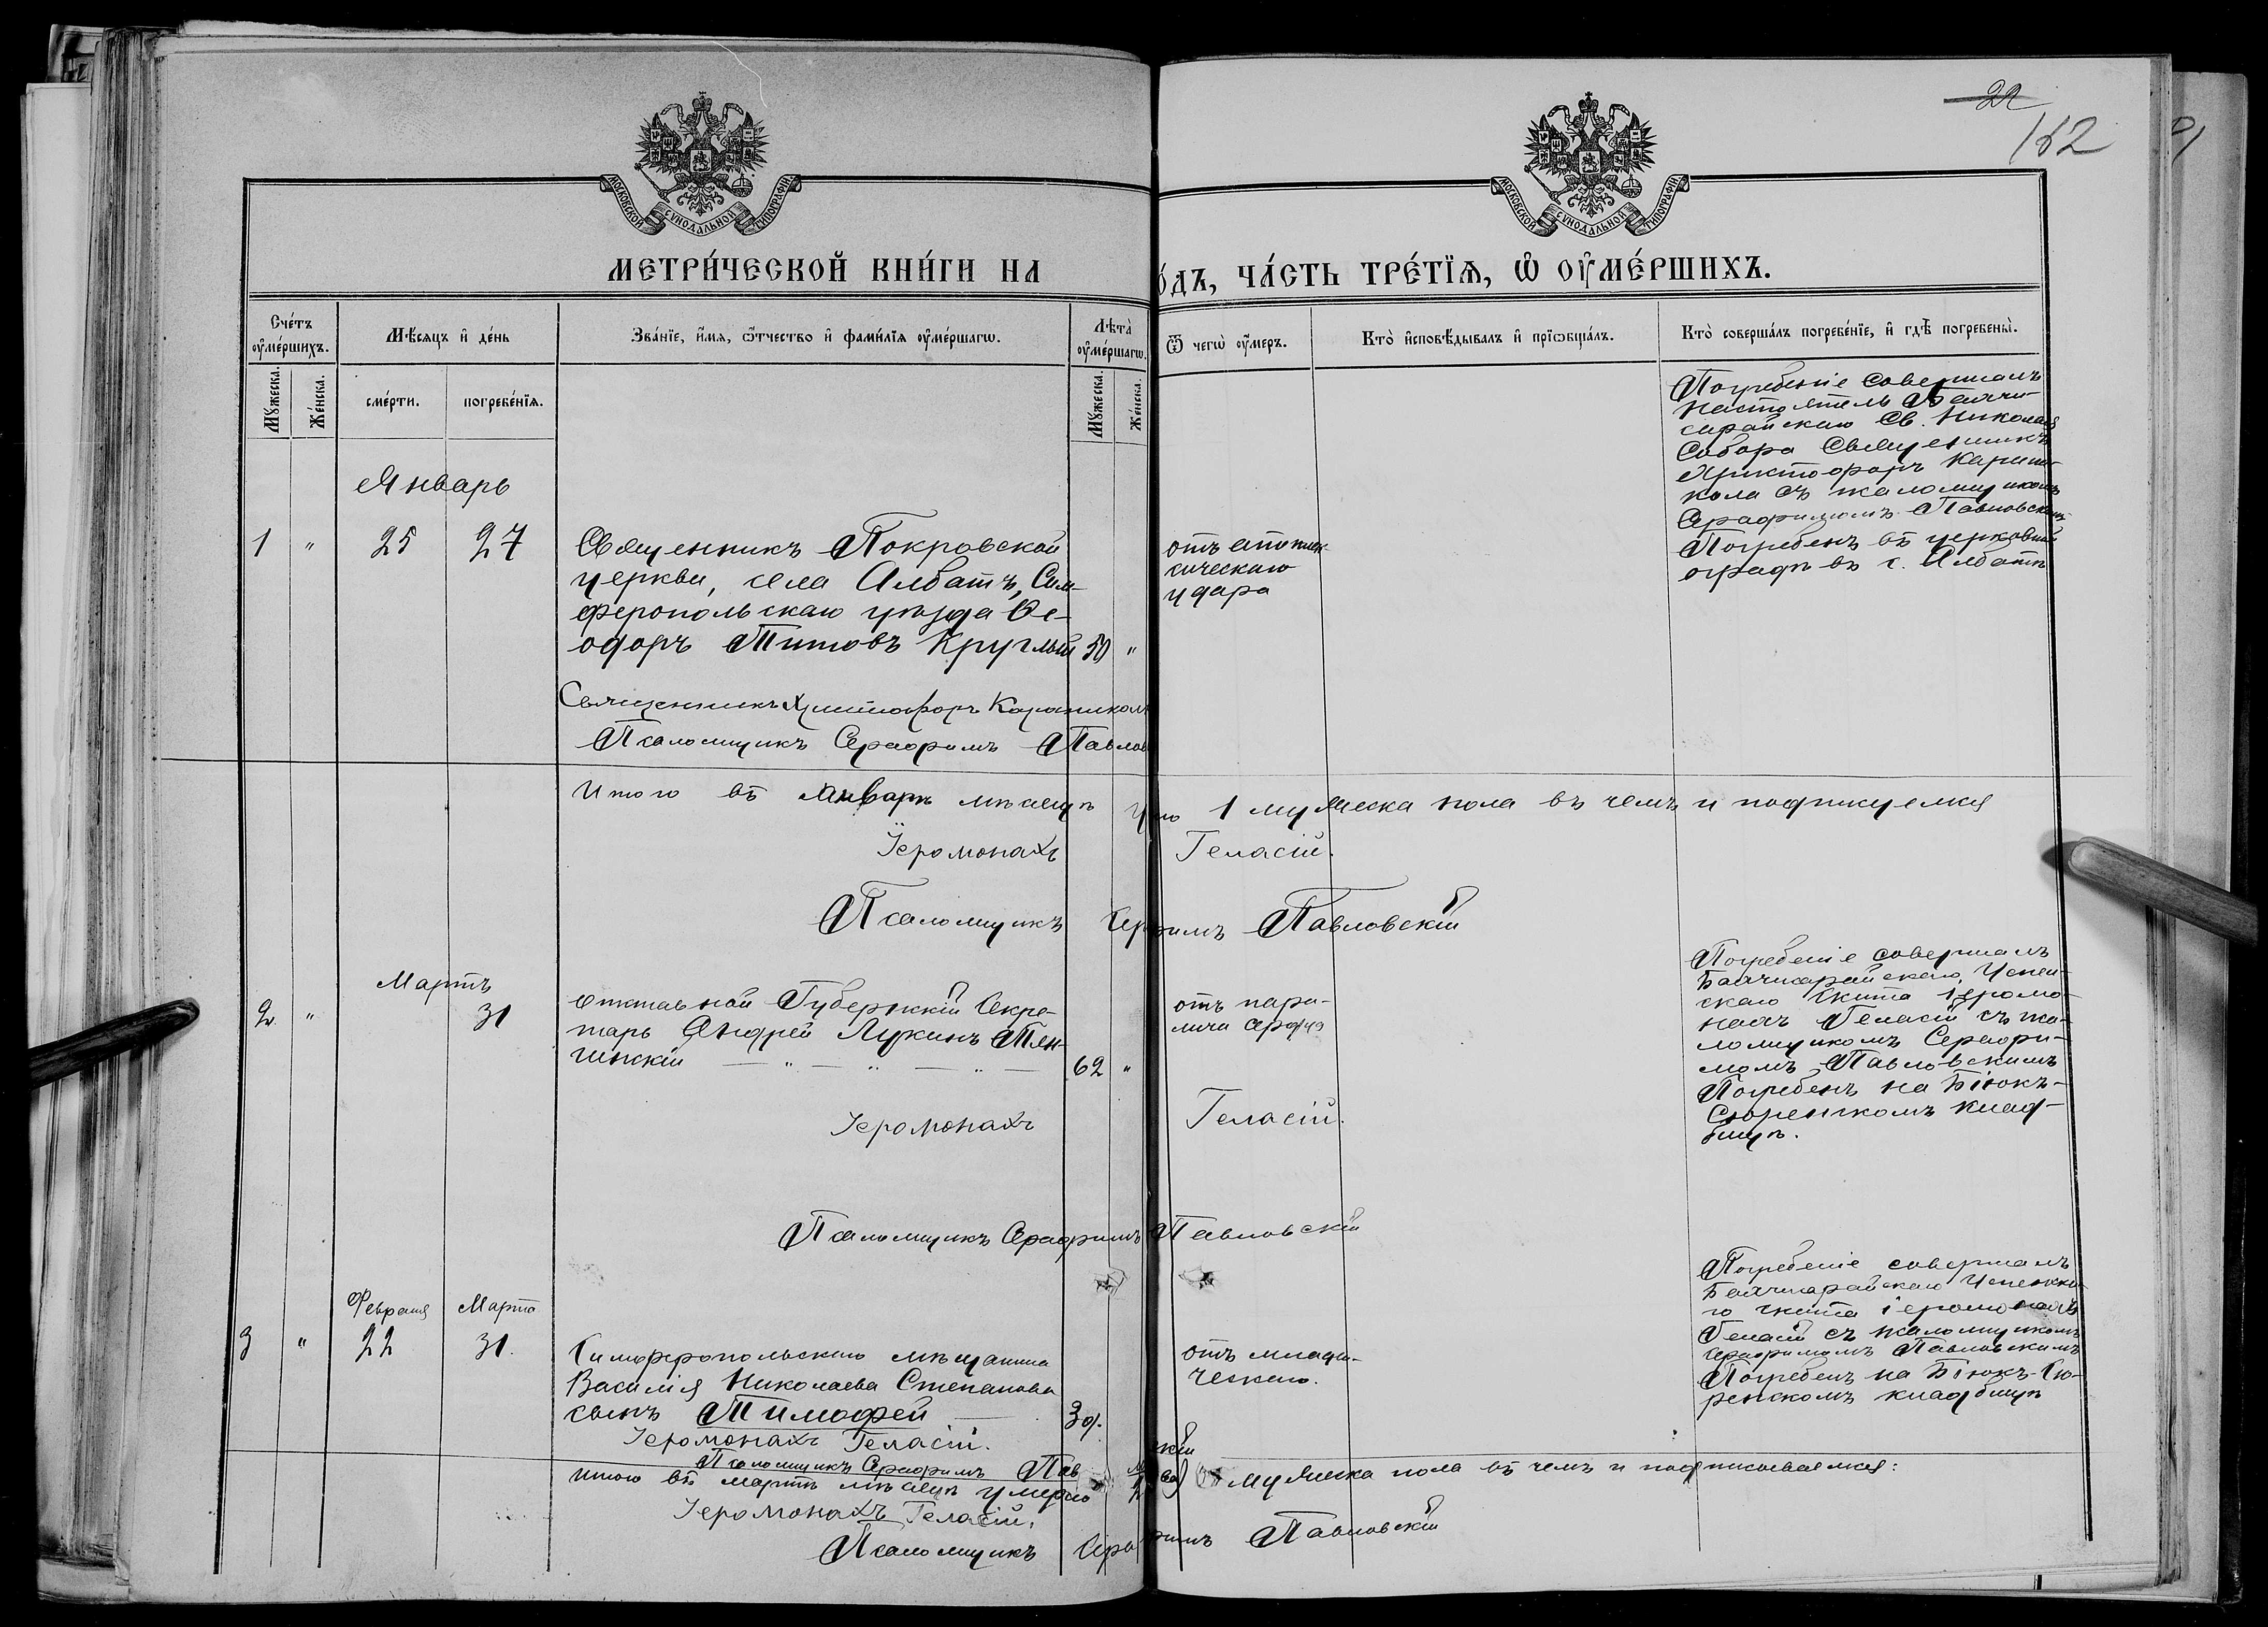 22
162
МОСКОВСКОЙ СУНОДАЛЬНОЙ ТИПОГРАФІИ
МОСКОВСКОЙ СУНОДАЛЬНОЙ ТИПОГРАФІИ
МЕТРИ́ЧЕСКОЙ КНИ́ГИ НА
о́дъ, ЧА́СТЬ ТРЕ́ТІѦ, Ѡ ОУМЕ́РШИХЪ.
Сче́тъ оуме́ршихъ.
Мѣ́сяцъ и де́нь
Зва́нїе, и́мя, ѻ́тчество и фами́лїя оуме́ршагѡ.
Лѣта̀ оуме́ршагѡ.
Ѿ чегѡ̀ оу́меръ.
Кто̀ исповѣ́дывалъ и прїѡбща́лъ.
Кто̀ соверша́лъ погребе́нїе, и гдѣ̀ погребены̀.
Мꙋ́жеска.
Же́нска.
сме́рти.
погребе́нїя.
Мꙋ́жеска.
Же́нска.
Январь
1 " 25 27
Священникъ Покровской
церкви, села Албатъ, Сим-
феропольскаго уѣзда Ѳе-
одоръ Титовъ Круглый 50 "
отъ апоплек-
сическаго
удара
Погребеніе совершалъ
настоятель Бахчи-
сарайскаго Св. Николая
Собора Священникъ
Христофоръ
съ псаломщикомъ
Серафимомъ Павловскимъ
Погребенъ въ церковной
оградѣ въ с. Албатѣ
Священникъ Христофоръ
Псаломщикъ Серафимъ Павлов
Итого въ Январѣ мѣсяцѣ 1 мужеска пола въ чемъ и подписуемся
Іеромонахъ Геласій.
Псаломщикъ Серфимъ Павловскій
Мартъ
2 " 31
Отставной Губернскій Секре-
тарь Андрей Лукинъ Тян-
гинскій — " — " — " — 62 "
отъ пара-
лича сердца
Погребеніе совершалъ
Бахчисарайскаго Успен-
скаго Скита іеромо-
нахъ Геласій съ пса-
ломщикомъ Серафи-
момъ Павловскимъ
Погребенъ на Біюкъ-
Сюренскомъ клад-
бищѣ.
Іеромонахъ Геласій.
Псаломщикъ Серафимъ Павловскій
Февраля Марта
3 " 22 31.
Симферопольскаго мѣщанина
Василія Николаева Степанова
сынъ Тимофей — 3 д.
отъ младен-
ческаго.
Погребеніе совершалъ
Бахчисарайскаго Успенска-
го скита іеромонахъ
Геласій съ псаломщикомъ
Серафимомъ Павловскимъ
Погребенъ на Біюкъ-Сю-
ренскомъ кладбищѣ
Іеромонахъ Геласій.
Псаломщикъ Серафимъ Павскій
Итого въ мартѣ мѣсяцѣ умерло мужеска пола въ чемъ и подписываемся:
Іеромонахъ Геласій.
Псаломщикъ Серафимъ Павловскій